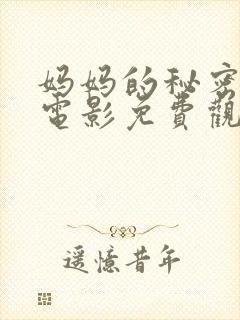 妈妈的秘密
電影免費觀
遥憶昔年